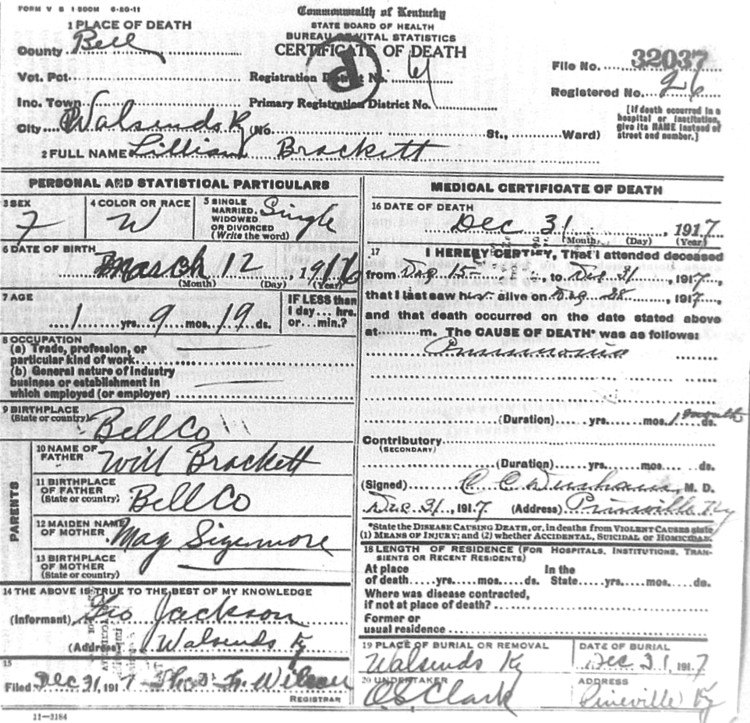 FORM V S 1 500M 6-20-11
Commonwealth of Kentucky
STATE BOARD OF HEALTH
BUREAU OF VITAL STATISTICS
CERTIFICATE OF DEATH
1 PLACE OF DEATH
County Bell
Vot. Pct
Inc. Town
City Walsends Ky No. St., Ward)
Registration District No. 61
Primary Registration District No.
P
File No. 32037
Registered No. 26
[If death occurred in a hospital or institution, give its NAME instead of street and number.]
2 FULL NAME Lillian Brackett
PERSONAL AND STATISTICAL PARTICULARS
3 SEX
F
4 COLOR OR RACE
W
5 SINGLE MARRIED, WIDOWED OR DIVORCED (Write the word)
Single
6 DATE OF BIRTH
March 12, 1916
(Month) (Day) (Year)
7 AGE
1 yrs. 9 mos. 19 ds.
IF LESS than 1 day... hrs. or... min.?
8 OCCUPATION
(a) Trade, profession, or particular kind of work
(b) General nature of industry business or establishment in which employed (or employer)
9 BIRTHPLACE
(State or country)
Bell Co
PARENTS
10 NAME OF FATHER
Will Brackett
11 BIRTHPLACE OF FATHER (State or country)
Bell Co
12 MAIDEN NAME OF MOTHER
May Sizemore
13 BIRTHPLACE OF MOTHER (State or country)
14 THE ABOVE IS TRUE TO THE BEST OF MY KNOWLEDGE
(Informant) Geo Jackson
(Address) Walsends Ky
15
Filed Dec 31, 1917 Thos. Wilson
REGISTRAR
11-3184
MEDICAL CERTIFICATE OF DEATH
16 DATE OF DEATH
Dec 31, 1917
(Month) (Day) (Year)
17 I HEREBY CERTIFY, That I attended deceased
from Dec 15, to Dec 31, 1917,
that I last saw her alive on Dec 28, 1917,
and that death occurred on the date stated above
at m. The CAUSE OF DEATH* was as follows:
Pneumonia
(Duration) yrs. mos. 1 month ds.
Contributory
(SECONDARY)
(Duration) yrs. mos. ds.
(Signed) C C, M. D.
Dec 31, 1917 (Address) Pineville Ky
*State the DISEASE CAUSING DEATH, or, in deaths from VIOLENT CAUSES state (1) MEANS OF INJURY; and (2) whether ACCIDENTAL, SUICIDAL or HOMICIDAL
18 LENGTH OF RESIDENCE (FOR HOSPITALS, INSTITUTIONS, TRANSIENTS OR RECENT RESIDENTS)
At place of death yrs. mos. ds. In the State yrs. mos. ds.
Where was disease contracted, if not at place of death?
Former or usual residence
19 PLACE OF BURIAL OR REMOVAL
Walsends Ky
DATE OF BURIAL
Dec 31, 1917
20 UNDERTAKER
O. S. Clark
ADDRESS
Pineville Ky